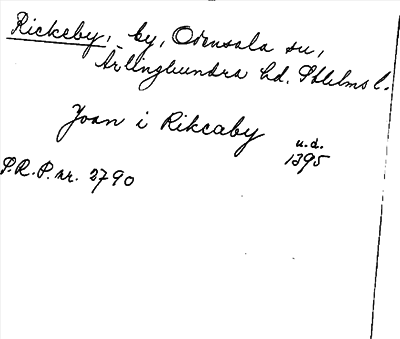 Rickeby, by, Odensala sn,
Ärlinghundra hd. Sthlms l.
Joan i Rikcaby
u.d.
1395
S.R.P. nr. 2790